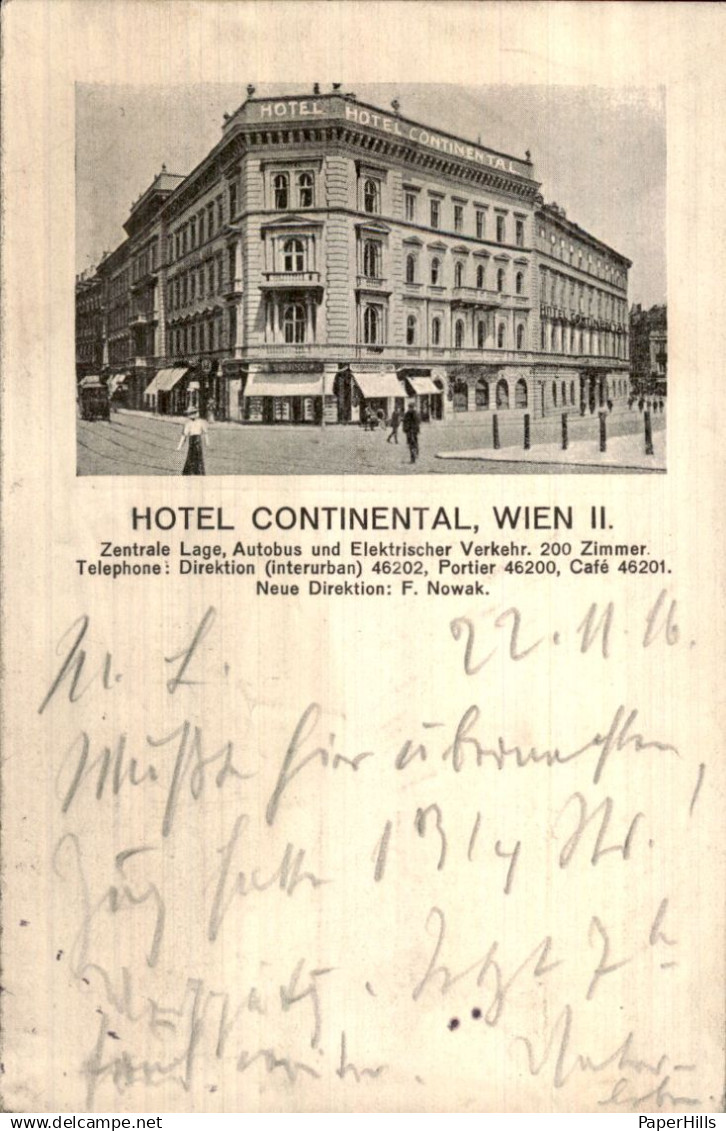 HOTEL HOTEL CONTINENTAL
HOTEL CONTINENTAL
HOTEL CONTINENTAL, WIEN II.
Zentrale Lage, Autobus und Elektrischer Verkehr. 200 Zimmer.
Telephone: Direktion (interurban) 46202, Portier 46200, Café 46201.
Neue Direktion: F. Nowak.
22.11.16.
M. L.
Mußte hier übernachten,
Zug hatte 1 3/4 St.
Verspätg. Jetzt 7h
weiter.
PaperHills